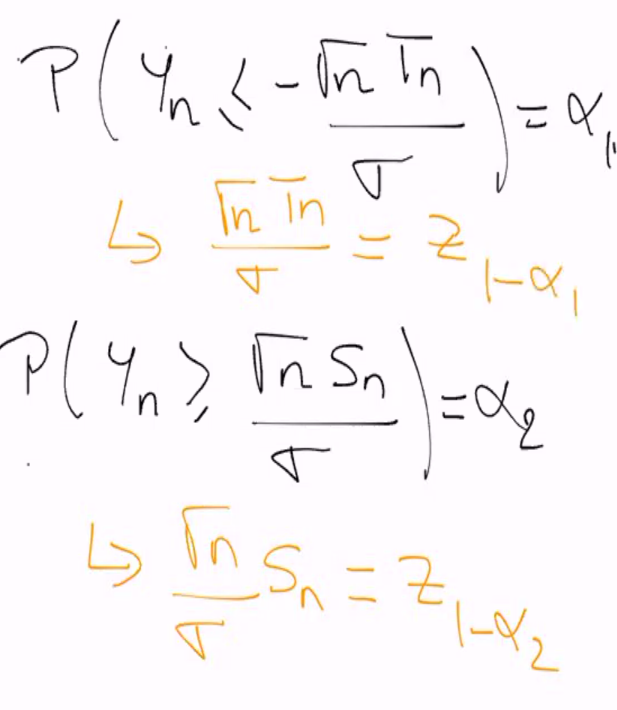 P( Yn ≤ -√n Tn / σ ) = α1
↳ √n Tn / σ = z 1-α1
P( Yn ≥ √n Sn / σ ) = α2
↳ √n / σ Sn = z 1-α2